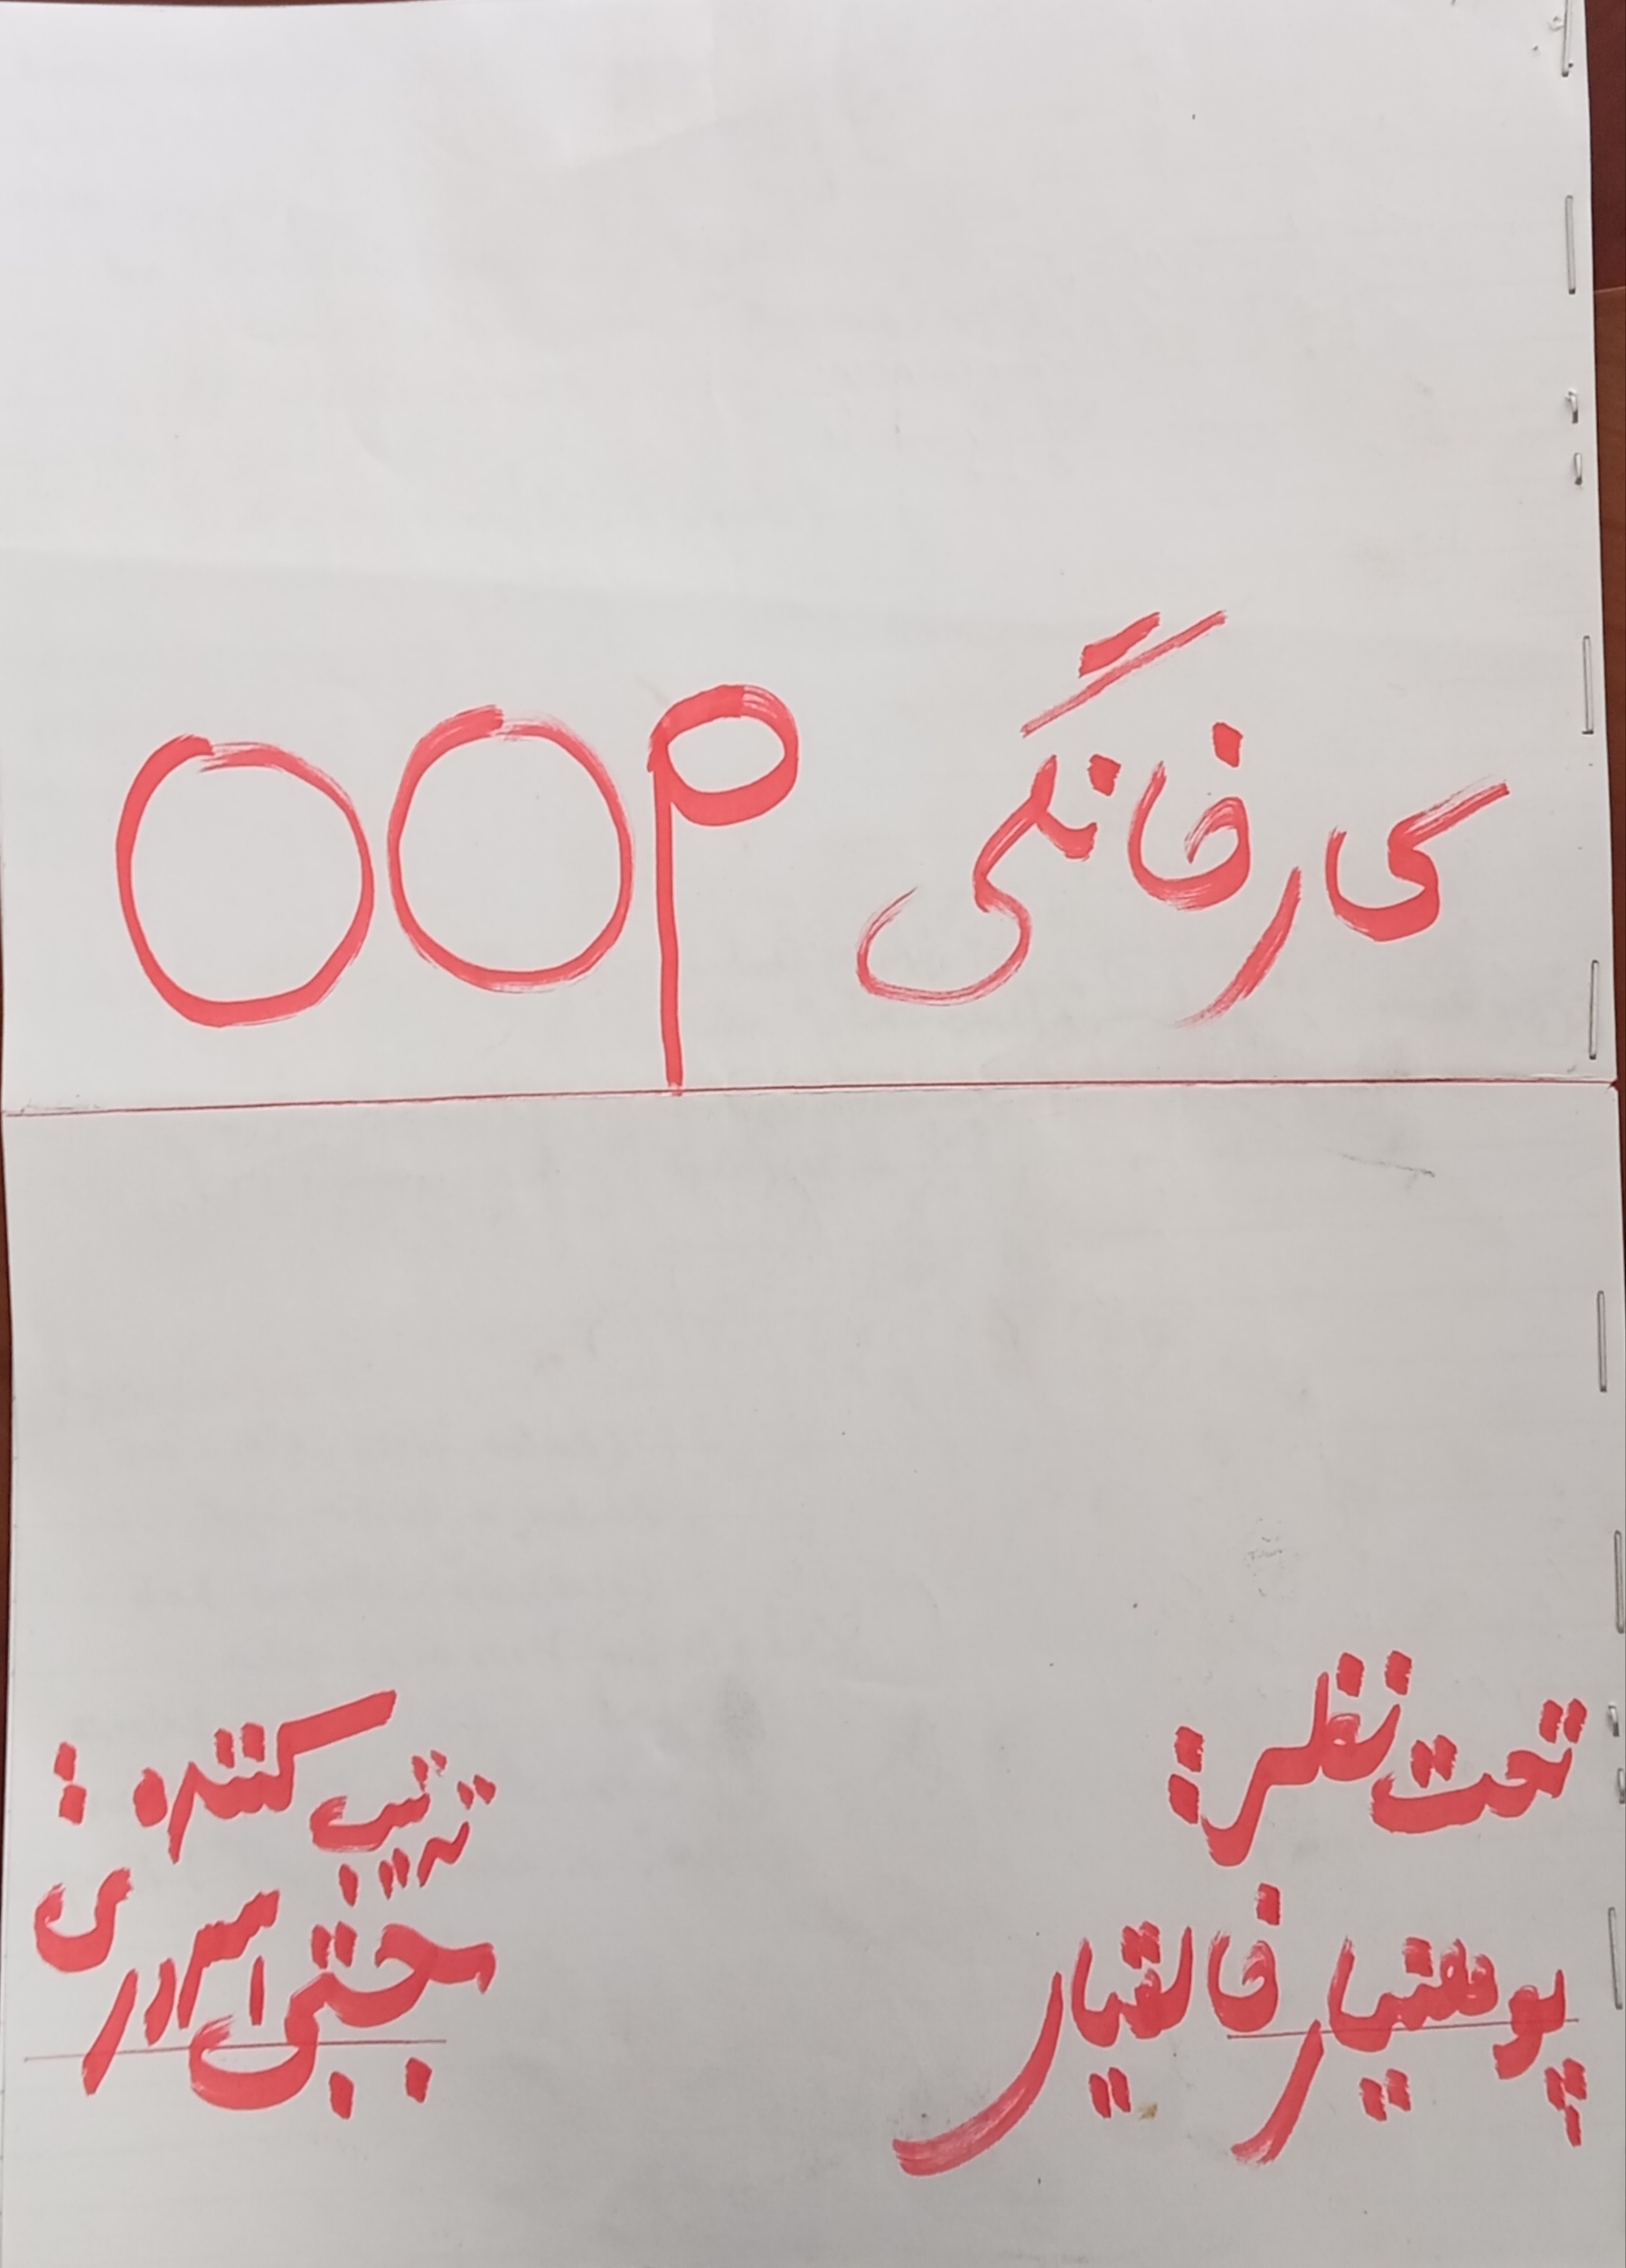 کارخانگی OOP
تحت نظر:
پوهنیار خالقیار
ترتیب کننده:
مجتبی سروری